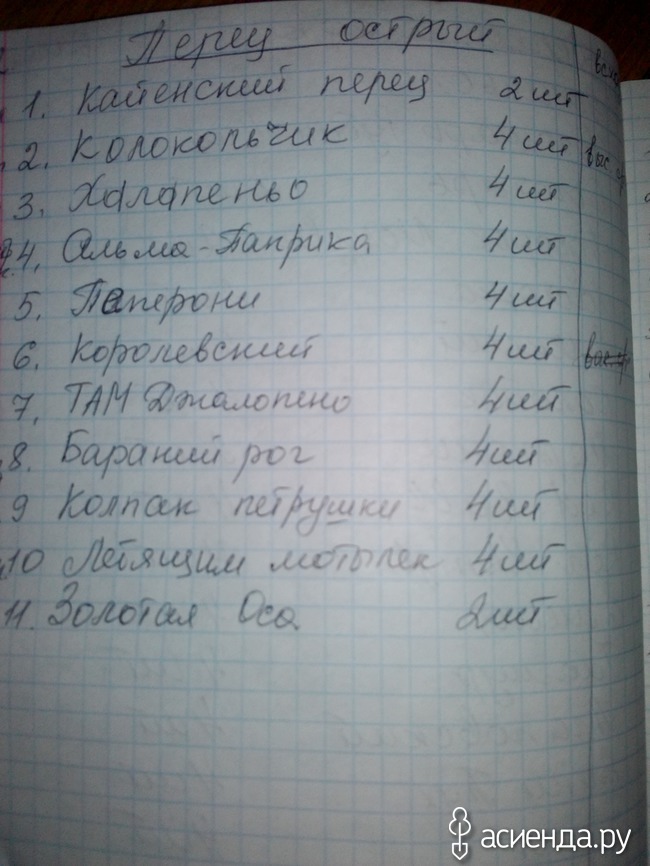 Перец острый
1. Кайенский перец 2 шт
2. Колокольчик 4 шт
3. Халапеньо 4 шт
4. Альма-Паприка 4 шт
5. Пеперони 4 шт
6. Королевский 4 шт
7. ТАМ Джалопено 4 шт
8. Бараний рог 4 шт
9 Колпак петрушки 4 шт
10 Летящим мотылек 4 шт
11. Золотая Оса 2 шт
асиенда.ру